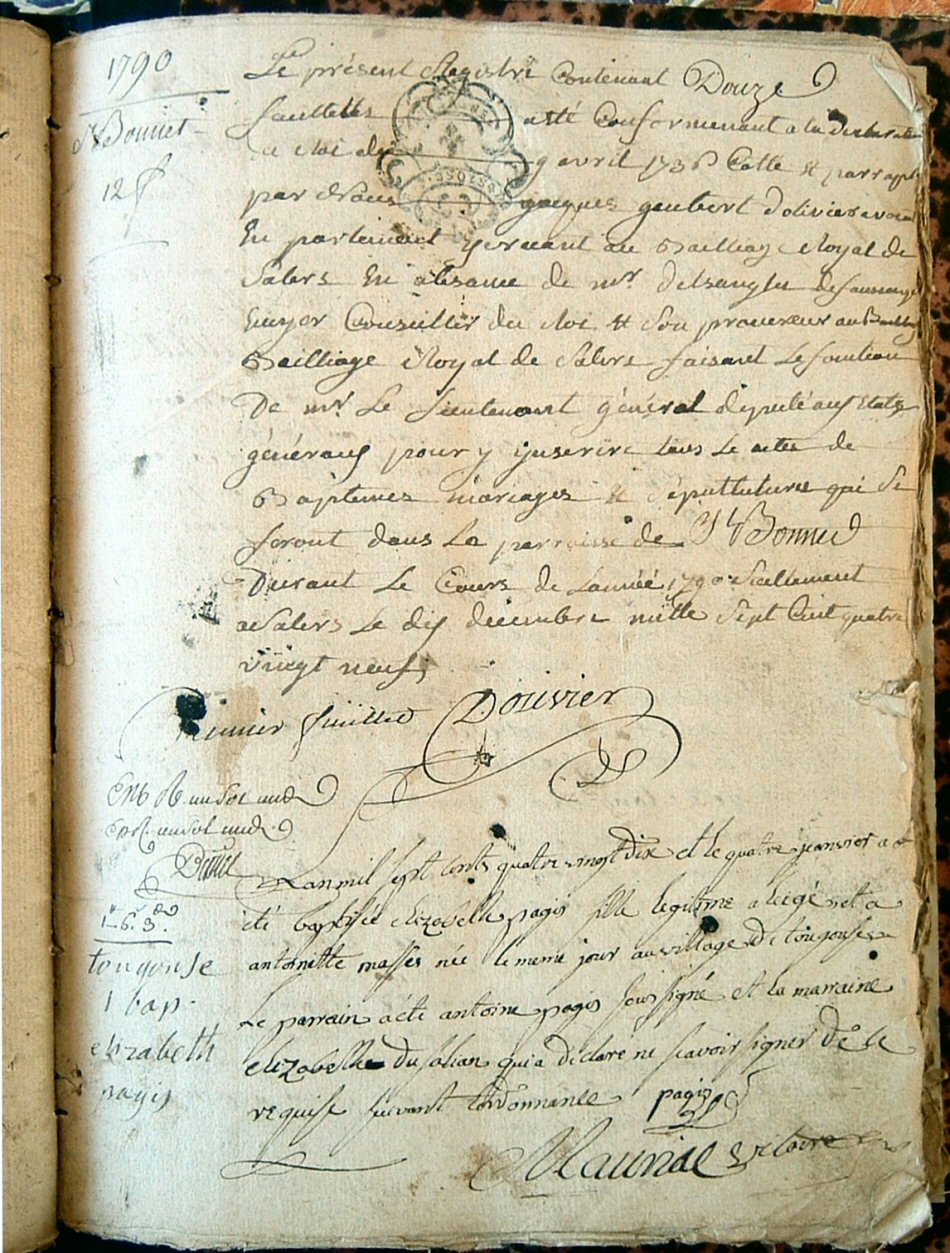 1790
St Bonnet
12 f
Le présent Registre Contenant Douze
feuillets a été Conformement a la declaration
du Roi du 9 avril 1736 Cotte & parraphé
par Nous jacques gaubert dolivier avocat
En parlement servant au Bailliage Royal de
Salers En absance de mr.
Ecuyer Conseiller du Roi & Son procureur au Bailliag
Bailliage Royal de Salers faisant Le fonction
De mr. Le Lieutenant général député aux Etats
généraux pour y ynserire tous Le actes de
Baptemes mariages & Sepultures qui Se
feront dans La parroisse de St Bonnet
Durant Le Cours de Lannée 1790
a Salers Le dix décembre mille Sept Cent quatre
vingt neuf,
premier feuillet Dolivier
un sol
un sol
Lan mil sept cents quatre vingt dix et le quatre janvier a
été baptisée elizabelle pagis fille legitime a leigé et a
antoinette masses née le meme jour au village de tougouse
Le parrain a été antoine pagis soussigné et la marraine
elizabelle qui a déclaré ne scavoir signer de ce
requise suivant lordonnance pagis
Mauriac victoire
tougouse
1 bap.
elizabeth
pagis